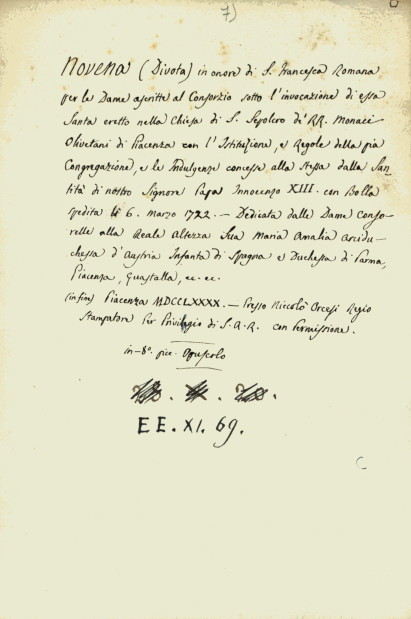 7)
Novena (Divota) in onore di S. Francesca Romana
per le Dame ascritte al Consorzio sotto l'invocazione di essa
Santa eretto nella Chiesa di S. Sepolcro de' RR. Monaci
Olivetani di Piacenza con l'Istituzione, e Regole della pia
Congregazione, e le Indulgenze concesse alla stessa dalla San-
tità di nostro Signore Papa Innocenzo XIII. con Bolla
spedita li 6. Marzo 1722. — Dedicata dalle Dame conso-
relle alla Reale Altezza Sua Maria Amalia Arcidu-
chessa d'Austria Infanta di Spagna e Duchessa di Parma,
Piacenza, Guastalla, ec. ec.
(in fine) Piacenza MDCCLXXXX. — Presso Niccolò Orcesi Regio
Stampatore Per Privilegio di S. A. R. con Permissione.
in-8°. picc. Opuscolo
EE. XI. 69.